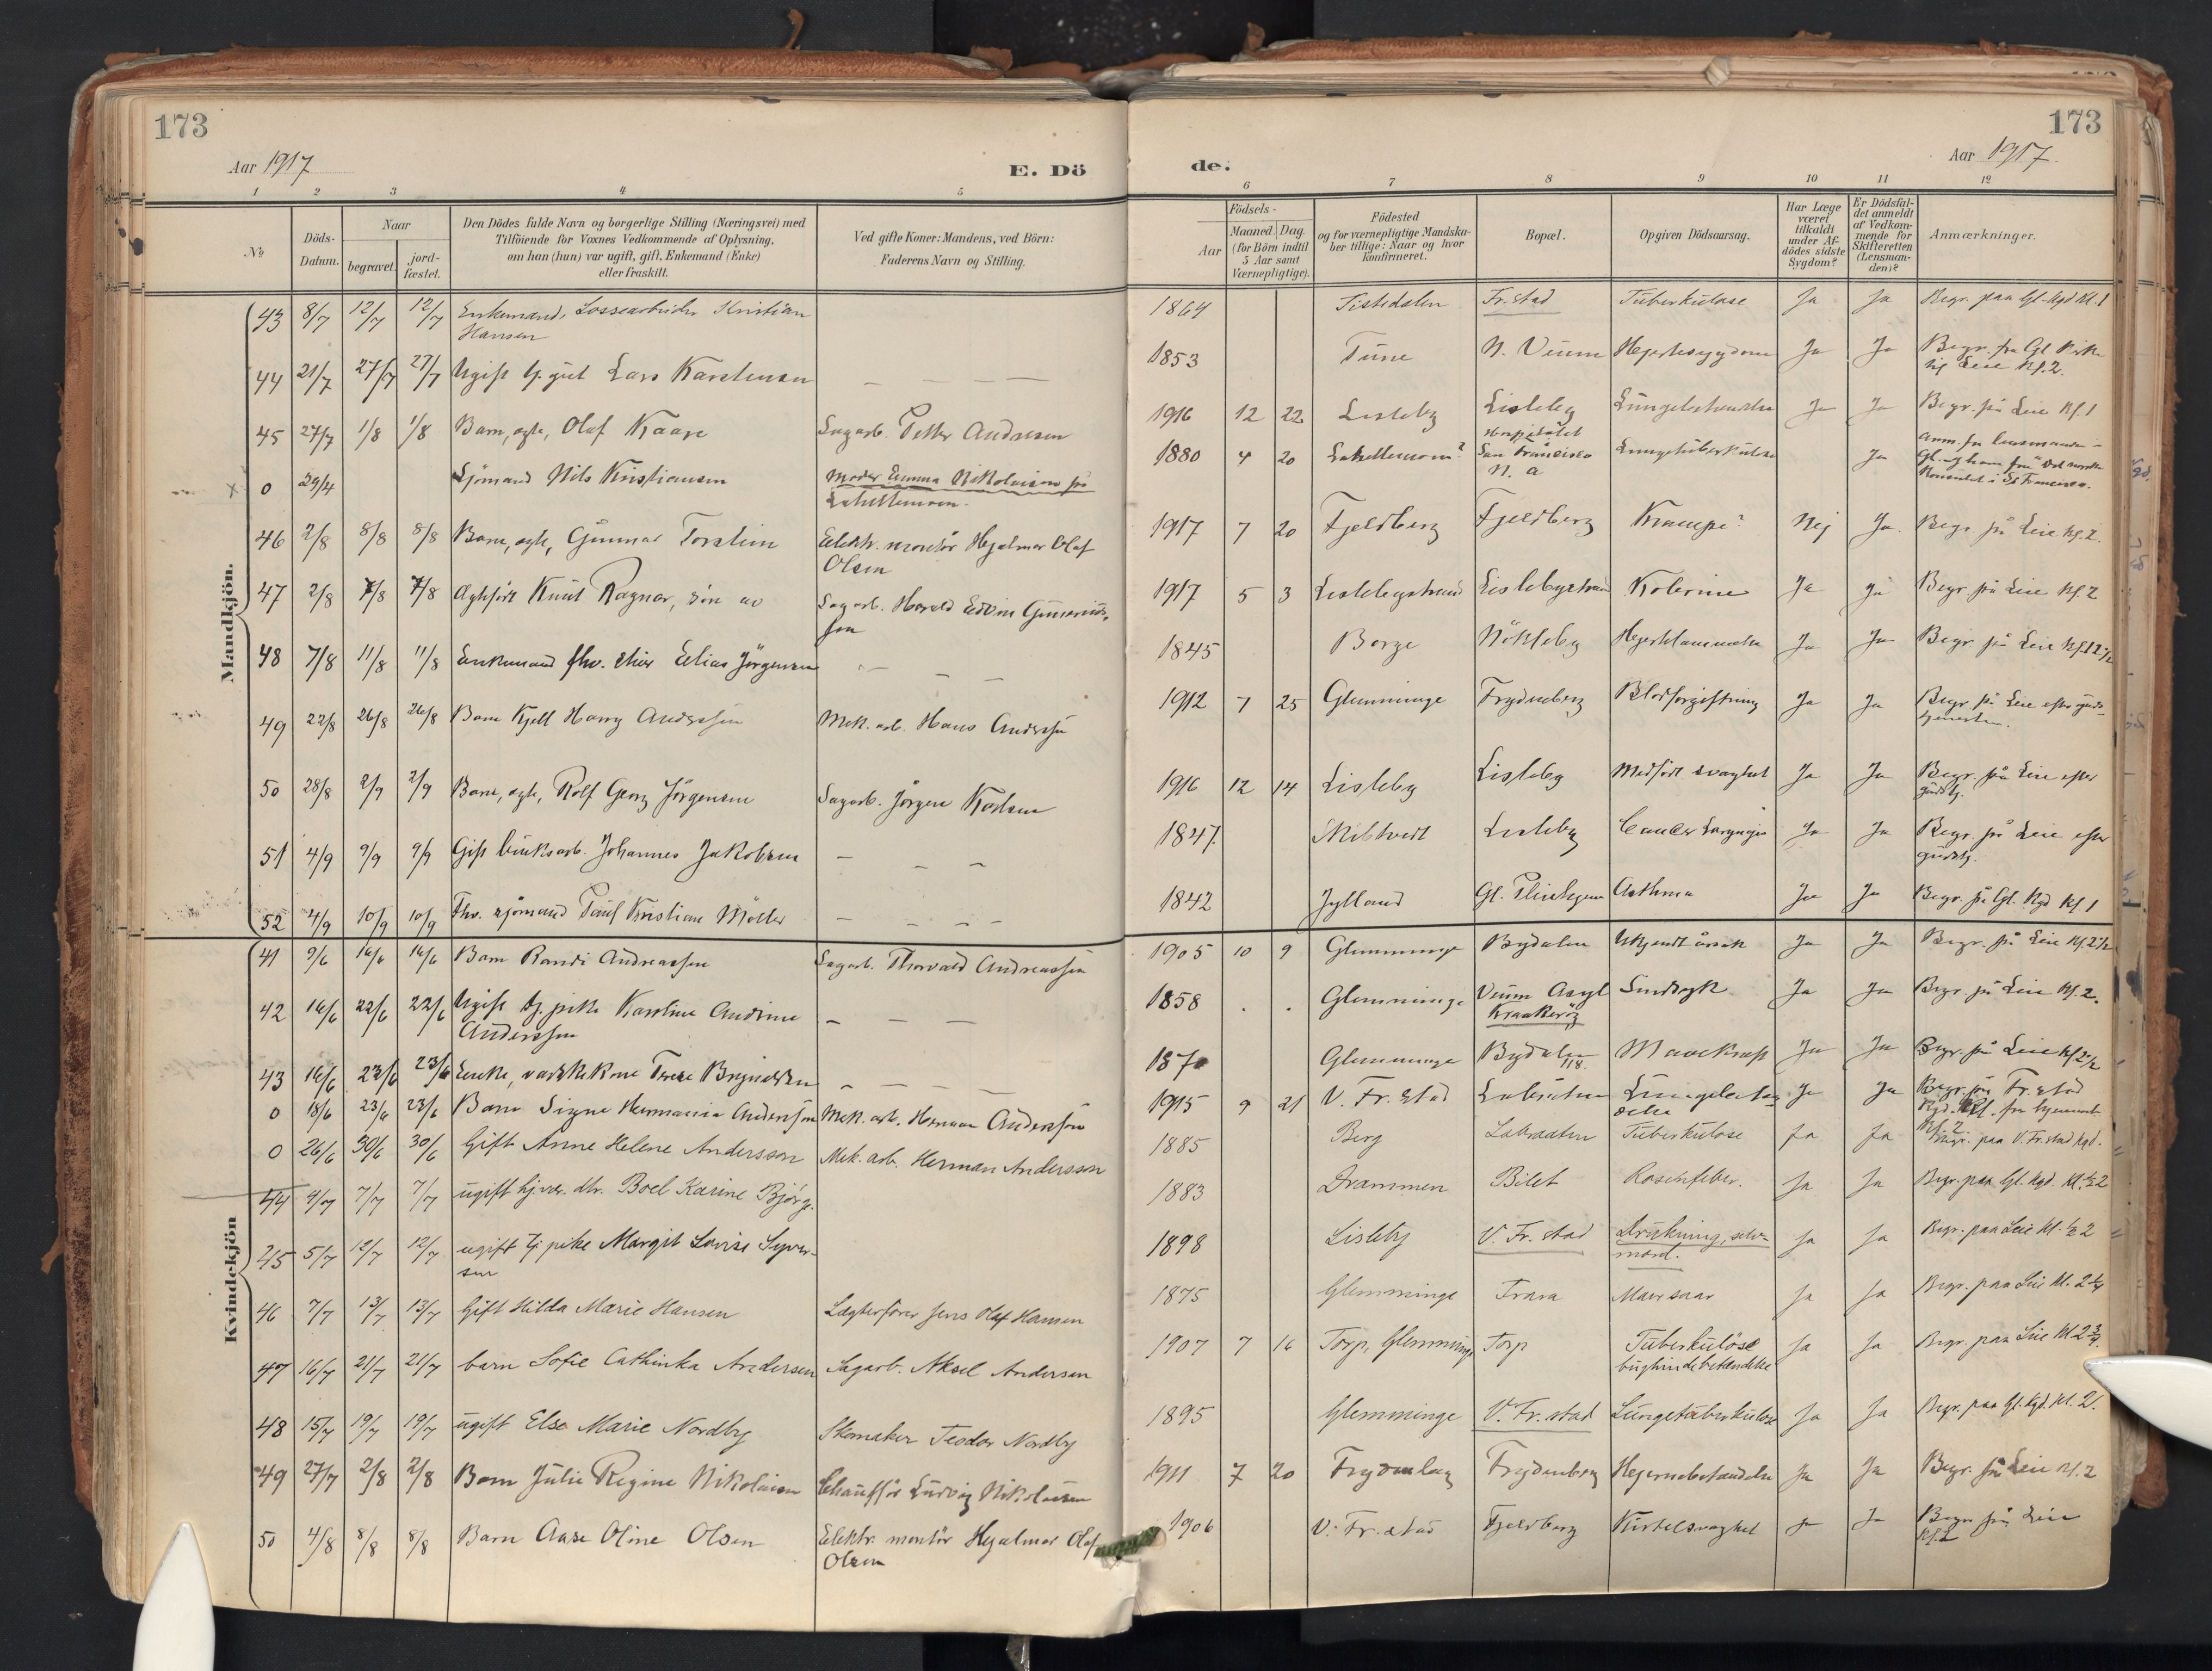 173
Aar 1917
E. Dö
1 2 3 4 5
№
Döds-Datum.
Naar
begravet.
jord-fæstet.
Den Dödes fulde Navn og borgerlige Stilling (Næringsvei) med
Tilföiende for Voxnes Vedkommende af Oplysning,
om han (hun) var ugift, gift, Enkemand (Enke)
eller fraskilt.
Ved gifte Koner: Mandens, ved Börn:
Faderens Navn og Stilling.
Mandkjön.
43 8/7 12/7 12/7 Enkemand, Lossearbeider Kristian
Hansen
44 21/7 27/7 27/7 Ugift Lars Karstensen — — —
45 27/7 1/8 1/8 Barn, egte, Olaf Kaare Sagarb. Petter Andresen
0 29/4 Sjömand Nils Kristiansen Moder Emma Nikolaisen på
46 2/8 8/8 8/8 Barn, egte, Gunnar Torstein Elektr. montör Hjalmar Olaf
Olsen
47 2/8 7/8 7/8 Knut Ragnar, sön av Sagarb. Harald Edvin
48 7/8 11/8 11/8 Enkemand fhv. Elias Jörgensen — —
49 22/8 26/8 26/8 Barn Kjell Harry Anderssen Mek. arb. Hans Anderssen
50 28/8 2/9 2/9 Barn, egte, Rolf Georg Jörgensen Sagarb. Jörgen Karlsen
51 4/9 9/9 9/9 Gift Johannes Jakobsen — — —
52 4/9 10/9 10/9 Fhv. sjömand Paul Kristian Möller — — — —
Kvindekjön
41 9/6 16/6 16/6 Barn Randi Andreassen Sagarb. Thorvald Andreassen
42 16/6 22/6 22/6 Ugift tj. pike Karoline Andrine — — —
Anderssen
43 16/6 23/6 23/6 Enke, vaskekone — — — —
0 18/6 23/6 23/6 Barn Signe Hermania Anderssen Mek. arb. Herman Anderssen
0 26/6 30/6 30/6 Gift Anne Helene Andersson Mek. arb. Herman Andersson
44 4/7 7/7 7/7 ugift Boel Karine Bjørg.
45 5/7 12/7 12/7 ugift tj pike Margit Lovise Syver-
sen
46 7/7 13/7 13/7 Gift Hilda Marie Hansen Lægterfører Jens Olaf Hansen
47 16/7 21/7 21/7 barn Sofie Cathinka Andersen Sagarb. Aksel Andersen
48 15/7 19/7 19/7 ugift Else Marie Nordby Skomaker Teodor Nordby
49 27/7 2/8 2/8 Barn Julie Regine Nikolaisen Chauffør Ludvig Nikolaisen
50 4/8 8/8 8/8 Barn Aase Oline Olsen Elektr. montör Hjalmar Olaf
Olsen
173
Aar 1917.
de.
6 7 8 9 10 11 12
Aar
Födsels-
Maaned. Dag.
(for Börn indtil
5 Aar samt
Værnepligtige).
Födested
og for værnepligtige Mandska-
ber tillige: Naar og hvor
konfirmeret.
Bopæl.
Opgiven Dödsaarsag.
Har Læge
været
tilkaldt
under Af-
dödes sidste
Sygdom?
Er Dödsfal-
det anmeldt
af Vedkom-
mende for
Skifteretten
(Lensman-
den)?
Anmærkninger.
1864 Tistedalen Fr.stad Tuberkulose Ja Ja Begr. paa Gl. Kgd Kl. 1
1853 Tune N. Veum Hjertesygdom Ja Ja Begr. fra Gl. Kirke
Leie Kl. 2.
1916 12 22 Lisleby Lisleby Lungebetændelse Ja Ja Begr. på Leie Kl. 1
1880 4 20 San Francisco Lungetuberkulose Ja
N. a
1917 7 20 Fjeldberg Fjeldberg Krampe? Nej Ja. Begr på Leie Kl. 2.
1917 5 3 Lislebystrand Lislebystrand Kolerine Ja Ja Begr. på Leie Kl. 2
1845 Borge Nökleby Ja Ja Begr. på Leie Kl. 12 1/2
1912 7 25 Glemminge Frydenberg Blodforgiftning Ja Ja Begr på Leie efter guds-
tjenesten.
1916 12 14 Lisleby Lisleby Medfödt svaghet Ja Ja Begr. på Leie efter
gudstj.
1847. Skibtvedt Lisleby Cancer Laryngis Ja Ja Begr på Leie efter
gudstj.
1842 Jylland Asthma Ja Ja Begr. på Gl. Kgd Kl. 1
1905 10 9 Glemminge Bydalen Ukjendt årsak Ja Ja Begr. på Leie Kl. 2 1/2
1858 Glemminge Veum Asyl Sindsyk Ja Ja Begr på Leie Kl. 2.
Kraakerøy
1870 Glemminge Bydalen Mavekræft Ja Ja Begr. på Leie Kl 2 1/2
118.
1915 9 21 V. Fr. stad Labraaten Ja Ja Begr. på Fr. stad
1885 Berg Labraaten Tuberkulose Ja Ja Begr. paa V. Fr.stad kgd.
1883 Drammen Bilet Rosenfeber. Ja Ja Begr. paa Gl. Kgd. Kl. 1/2 2
1898 Lisleby V. Fr. stad Drukning, selv-
mord. Ja Ja Begr. paa Leie Kl. 1/2 2
1875 Glemminge Trara Mavesaar Ja Ja Begr. paa Leie Kl. 2 1/4
1907 7 16 Torp, Glemminge Torp Tuberkuløse
bughindebetændelse Ja Ja Begr. paa Leie Kl 2 3/4.
1895 Glemminge V. Fr. stad Lungetuberkulose Ja Ja Begr. paa Gl. Kgd. Kl. 2.
1911 7 20 Frydenberg Frydenberg Hjernebetændelse Ja Ja Begr. på Leie Kl. 2
1906 V. Fr. stad Fjeldberg Kirtelsvaghet Ja Ja Begr på Leie
Kl. 2